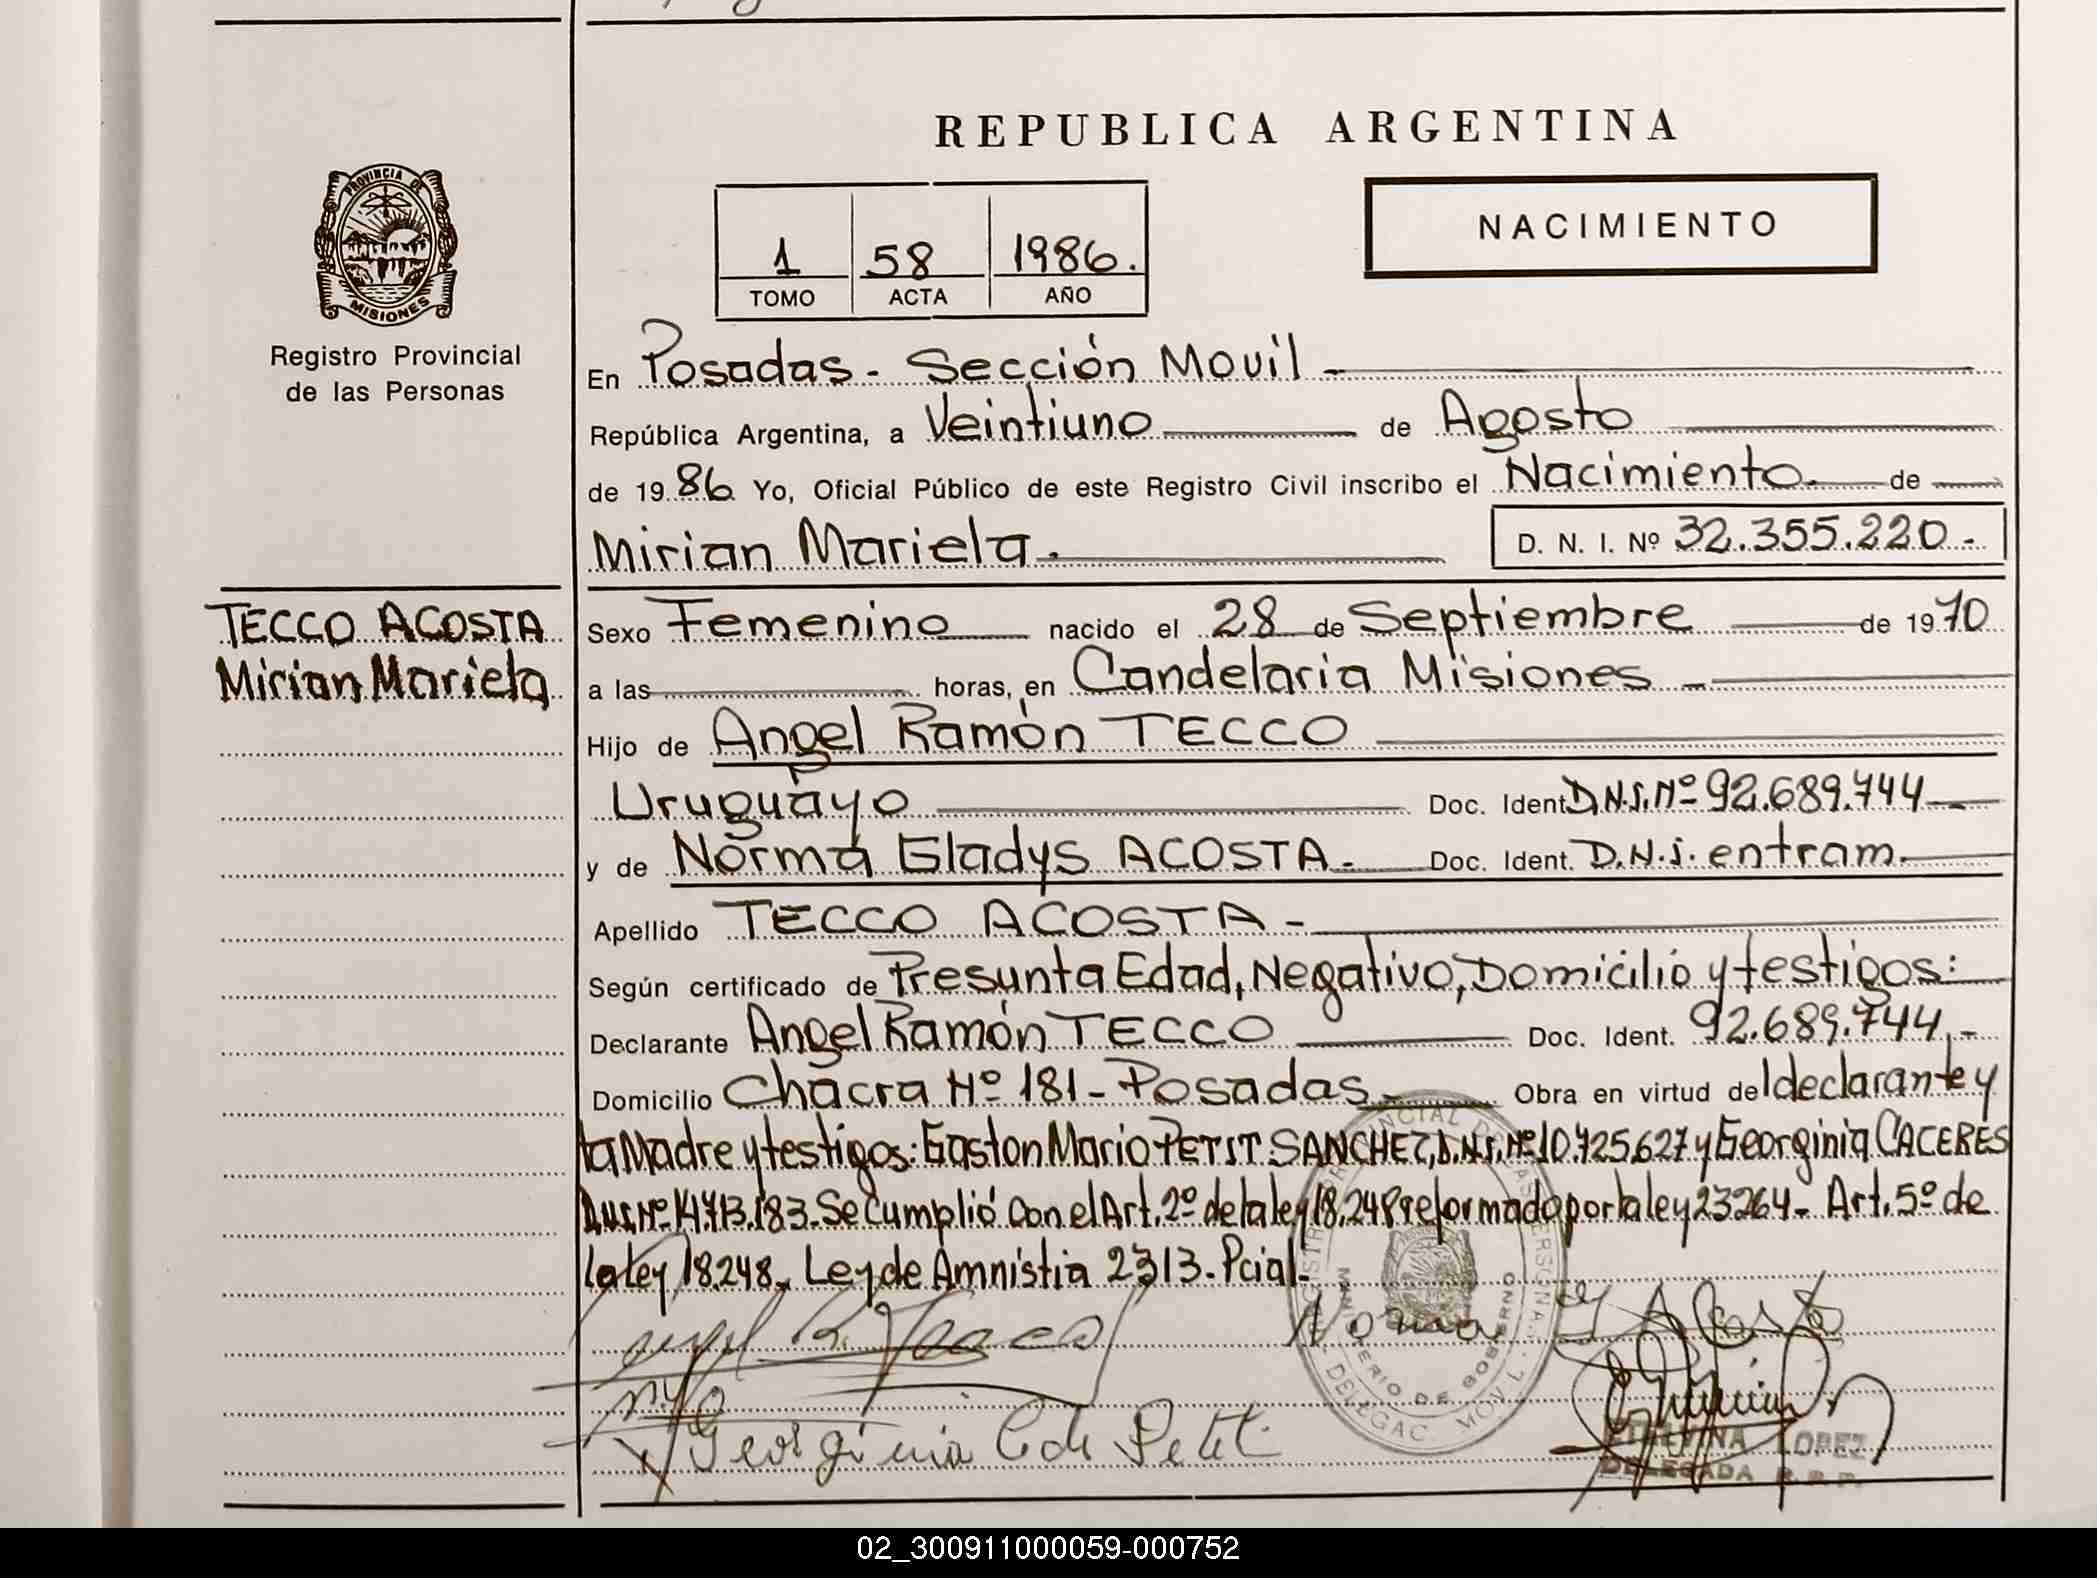 REPUBLICA ARGENTINA
NACIMIENTO
1 58 1986.
TOMO ACTA AÑO
PROVINCIA DE
MISIONES
Registro Provincial
de las Personas
En Posadas. Sección Movil
República Argentina, a Veintiuno de Agosto
de 1986 Yo, Oficial Público de este Registro Civil inscribo el Nacimiento. de
Mirian Mariela. D. N. I. Nº 32.355.220.-
TECCO ACOSTA
Mirian Mariela
Sexo Femenino nacido el 28 de Septiembre de 1970
a las horas, en Candelaria Misiones
Hijo de Angel Ramón TECCO
Uruguayo Doc. Ident. D.N.I. Nº 92.689.744
y de Norma Gladys ACOSTA.- Doc. Ident. D.N.I. entram.
Apellido TECCO ACOSTA -
Según certificado de Presunta Edad, Negativo, Domicilio y testigos:
Declarante Angel Ramón TECCO Doc. Ident. 92.689.744.-
Domicilio Chacra Nº 181 - Posadas.- Obra en virtud del declarante y
la Madre y testigos: Gaston Mario PETIT SANCHEZ, D.N.I. Nº 10.725.627 y Georginia CACERES
D.N.I. Nº 14.713.183. Se Cumplió con el Art. 2º de la ley 18.248 reformado por la ley 23264 - Art. 5º de
la Ley 18.248. Ley de Amnistia 2313. Pcial.
Norma G Acosta
Georginia C de Petit
MINISTERIO DE GOBIERNO
DELEGAC. MOVIL
LOPEZ
DELEGADA R. P. P.
02_300911000059-000752